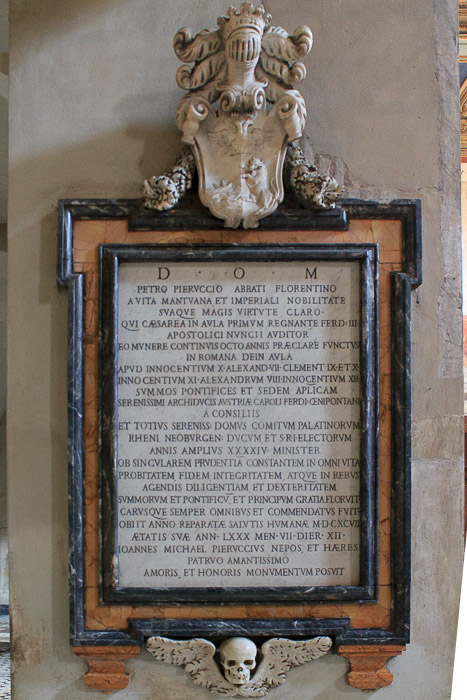 D · O · M
PETRO PIERVCCIO ABBATI FLORENTINO
AVITA MANTVANA ET IMPERIALI NOBILITATE
SVAQVE MAGIS VIRTVTE CLARO·
QVI CÆSAREA IN AVLA PRIMVM REGNANTE FERD·III·
APOSTOLICI NVNCII AVDITOR
EO MVNERE CONTINVIS OCTO ANNIS PRÆCLARE FVNCTVS
IN ROMANA DEIN AVLA
APVD INNOCENTIVM X·ALEXAND·VII·CLEMENT·IX·ET X·
INNOCENTIVM XI·ALEXANDRVM VIII·INNOCENTIVM XII·
SVMMOS PONTIFICES ET SEDEM APLICAM
SERENISSIMI ARCHIDVCIS AVSTRIÆ CAROLI FERD·ŒNIPONTANI
A CONSILIIS
ET TOTIVS SERENISS·DOMVS COMITVM PALATINORVM
RHENI NEOBVRGEN·DVCVM ET S·R·I·ELECTORVM
ANNIS AMPLIVS XXXXIV·MINISTER
OB SINGVLAREM PRVDENTIĀ CONSTANTEM IN OMNI VITA
PROBITATEM FIDEM INTEGRITATEM ATQVE IN REBVS
AGENDIS DILIGENTIAM ET DEXTERITATEM
SVMMORVM ET PONTIFICV̄ ET PRINCIPVM GRATIA FLORVIT
CARVSQVE SEMPER OMNIBVS ET COMMENDATVS FVIT·
OBIIT ANNO REPARATÆ SALVTIS HVMANÆ M·D·CXCVII
ÆTATIS SVÆ ANN·LXXX MEN·VII·DIER·XII·
IOANNES MICHAEL PIERVCCIVS NEPOS, ET HÆRES
PATRVO AMANTISSIMO
AMORIS, ET HONORIS MONVMENTVM POSVIT